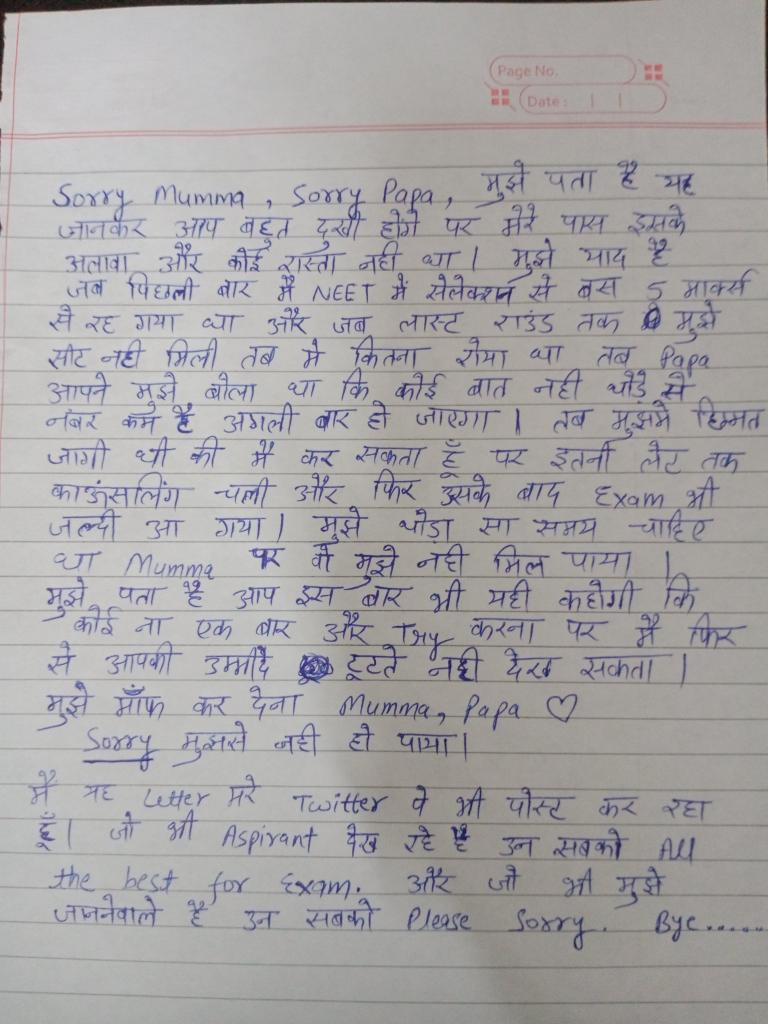 Page No.
Date :
Sorry Mumma, Sorry Papa, मुझे पता है यह
जानकर आप बहुत दुखी होंगे पर मेरे पास इसके
अलावा और कोई रास्ता नही था। मुझे याद है
जब पिछली बार मै NEET में सेलेक्शन से बस 5 मार्क्स
से रह गया था और जब लास्ट राउंड तक मुझे
सीट नही मिली तब मे कितना रोया था तब Papa
आपने मुझे बोला था कि कोई बात नही थोड़े से
नंबर कम है अगली बार हो जाएगा। तब मुझमे हिम्मत
जागी थी की मै कर सकता हूँ पर इतनी लेट तक
काऊंसलिंग चली और फिर उसके बाद Exam भी
जल्दी आ गया। मुझे थोड़ा सा समय चाहिए
था Mumma पर वो मुझे नही मिल पाया।
मुझे पता है आप इस बार भी यही कहोगी कि
कोई ना एक बार और Try करना पर मै फिर
से आपकी उम्मीदे टूटते नही देख सकता।
मुझे माँफ कर देना Mumma, Papa ♡
Sorry मुझसे नही हो पाया।
मै यह Letter मेरे Twitter पे भी पोस्ट कर रहा
हूँ। जो भी Aspirant देख रहे है उन सबको All
the best for Exam. और जो भी मुझे
जाननेवाले है उन सबको Please Sorry. Bye......